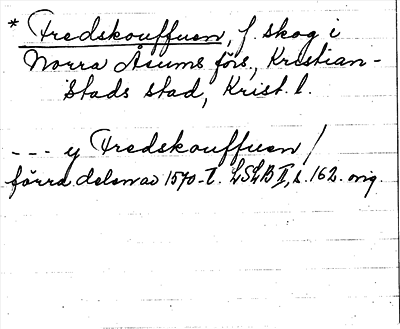 * Fredskouffuen, f. skog i
Norra Åsums förs., Kristian-
stads stad, Krist. l.
--- y Fredskouffuen /
förra delen av 1570-t. LSLB II, s. 162. orig.